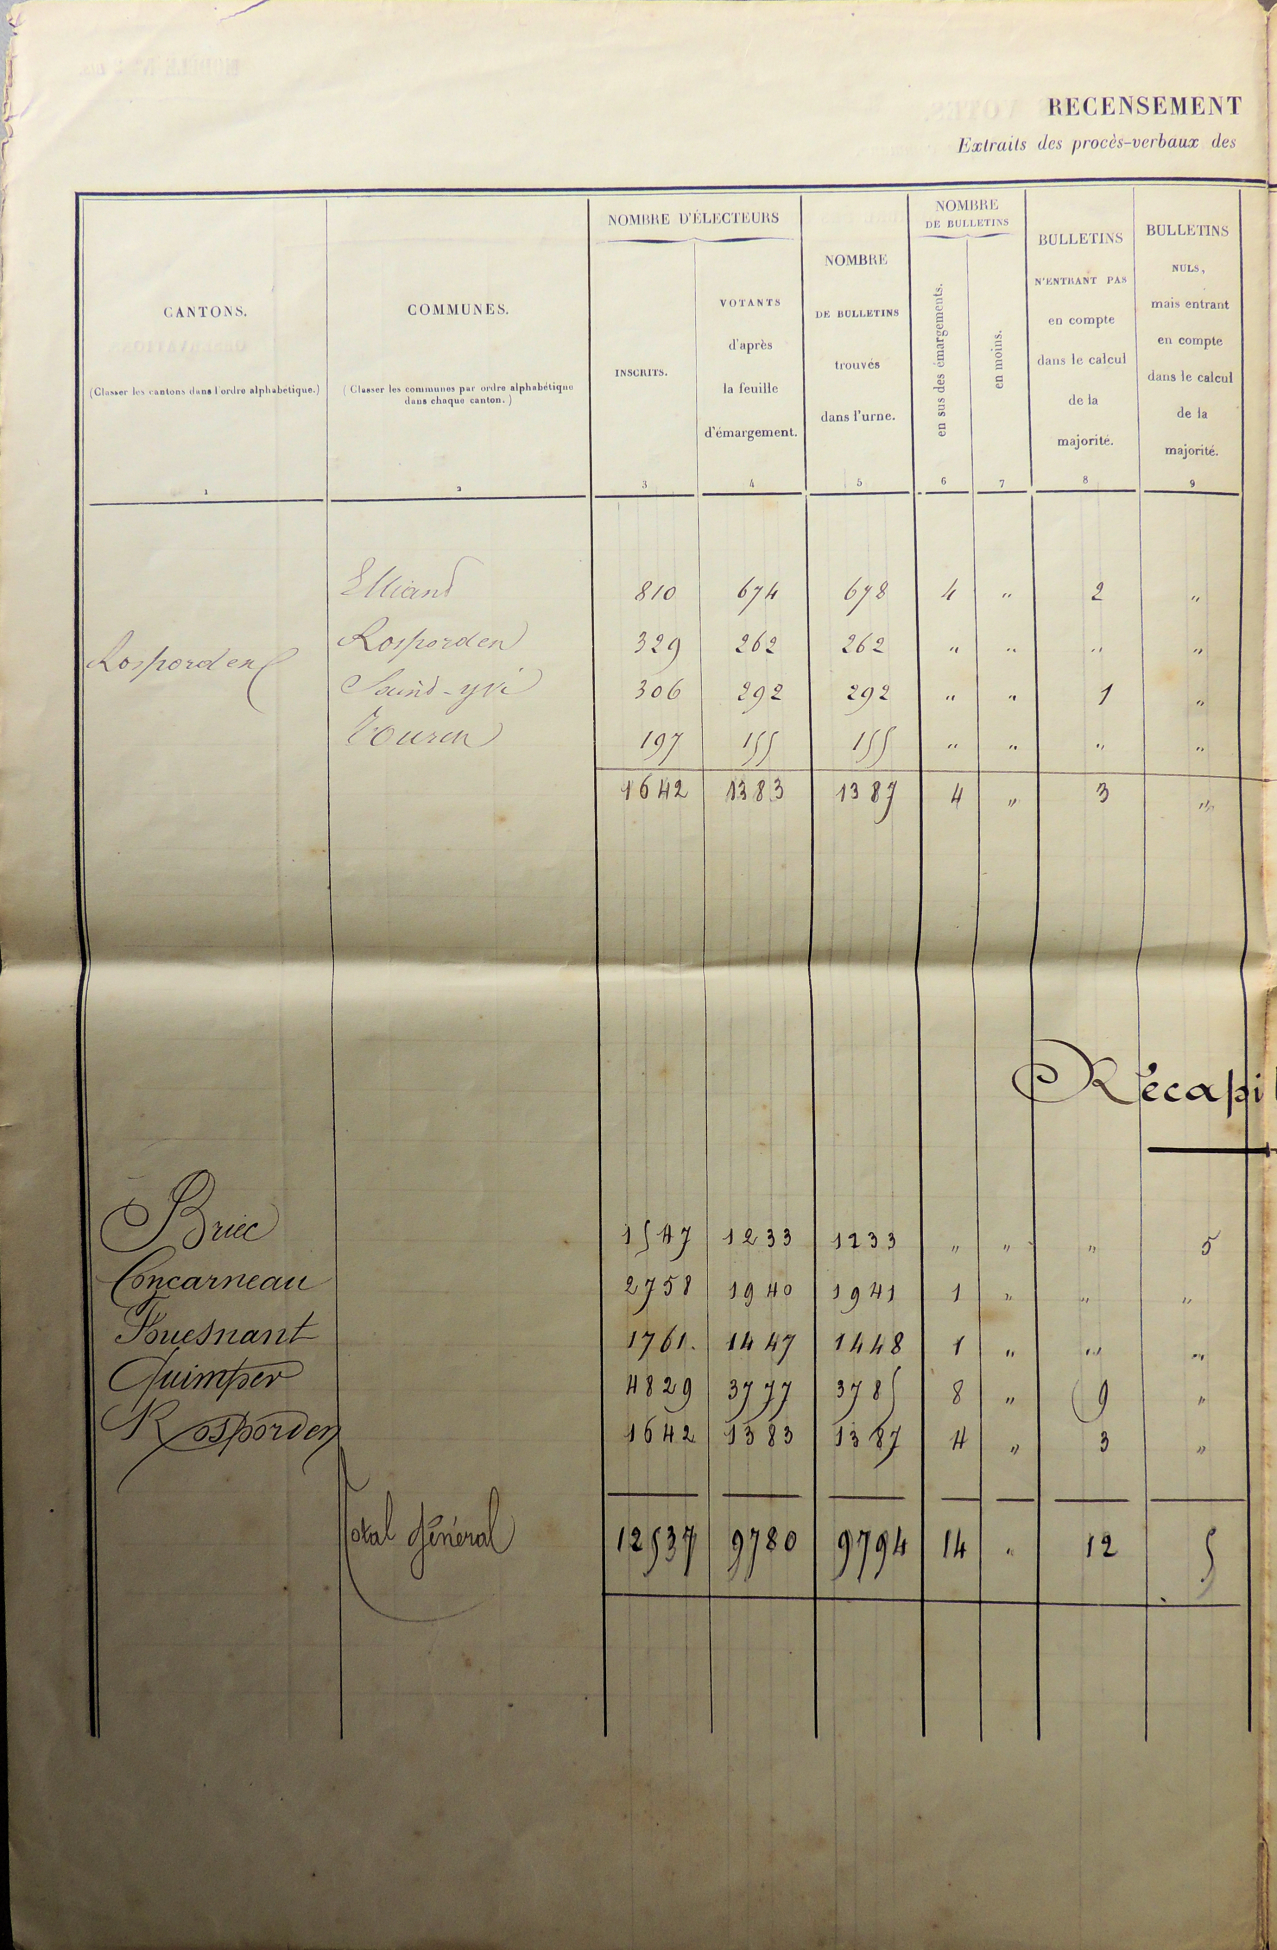 RECENSEMENT
Extraits des procès-verbaux des
CANTONS.
(Classer les cantons dans l'ordre alphabétique.)
1
COMMUNES.
(Classer les communes par ordre alphabétique
dans chaque canton.)
2
NOMBRE D'ÉLECTEURS
INSCRITS.
3
VOTANTS
d'après
la feuille
d'émargement.
4
NOMBRE
DE BULLETINS
trouvés
dans l'urne.
5
NOMBRE
DE BULLETINS
en sus des émargements.
6
en moins.
7
BULLETINS
N'ENTRANT PAS
en compte
dans le calcul
de la
majorité.
8
BULLETINS
NULS,
mais entrant
en compte
dans le calcul
de la
majorité.
9
Rosporden
Elliant 810 674 678 4 " 2 "
Rosporden 329 262 262 " " " "
Saint-yvi 306 292 292 " " 1 "
Tourch 197 155 155 " " " "
1642 1383 1387 4 " 3 "
Récapit
Briec 1547 1233 1233 " " " 5
Concarneau 2758 1940 1941 1 " " "
Fouesnant 1761. 1447 1448 1 " " "
Quimper 4829 3777 3785 8 " 9 "
Rosporden 1642 1383 1387 4 " 3 "
Total général 12537 9780 9794 14 " 12 5